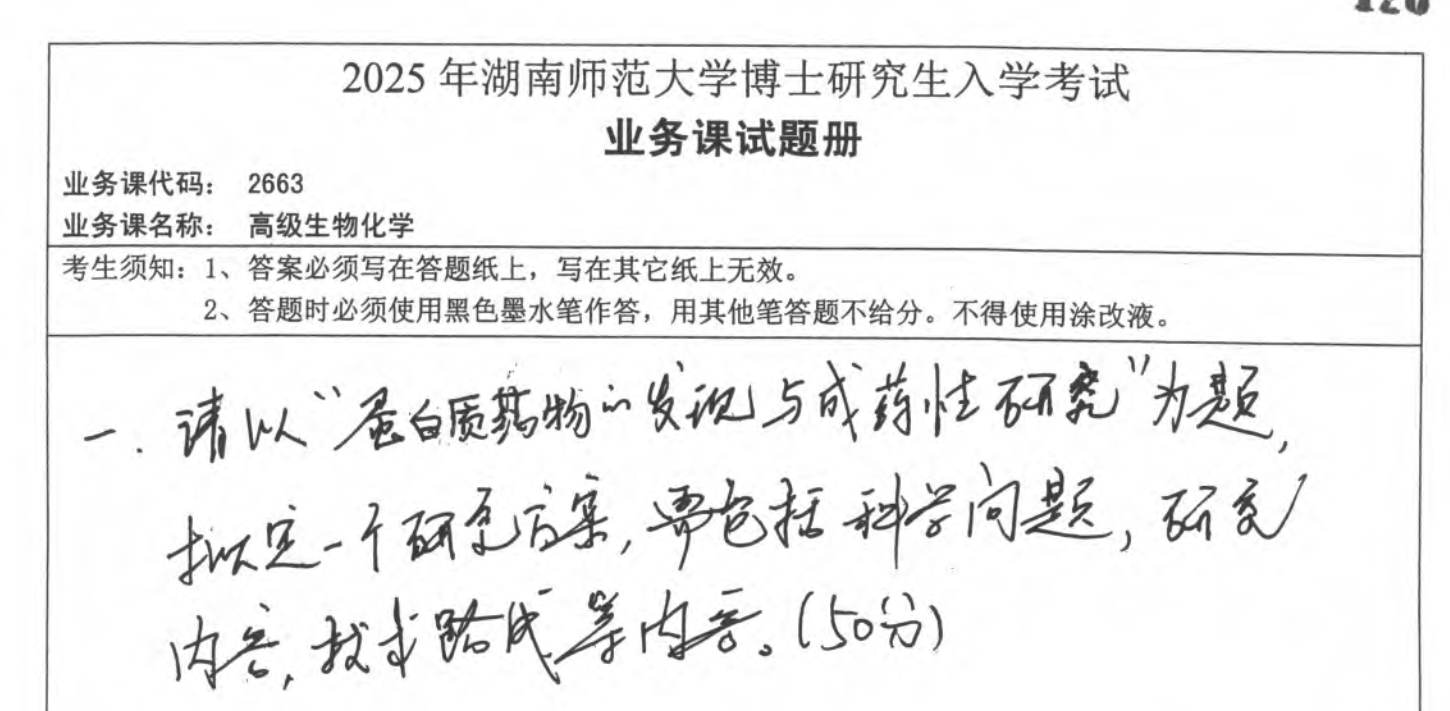 120
2025 年湖南师范大学博士研究生入学考试
业务课试题册
业务课代码： 2663
业务课名称： 高级生物化学
考生须知：1、答案必须写在答题纸上，写在其它纸上无效。
2、答题时必须使用黑色墨水笔作答，用其他笔答题不给分。不得使用涂改液。
一. 请以“蛋白质药物的发现与成药性研究”为题,
拟定一个研究方案, 需包括科学问题, 研究
内容, 技术路线等内容。(50分)